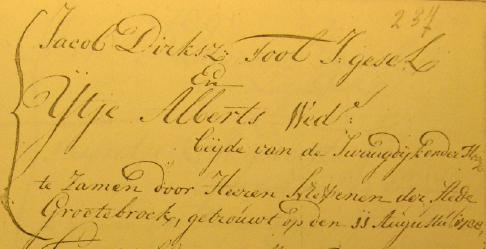 237
Jacob Dirksz: Tool J: gesel
En
Ytje Alberts Wed:e
Beijde van de Zwaagdijk onder
te zamen door Heeren Schepenen der Stede
Grootebroek, getrouwt op den 11 Augusti